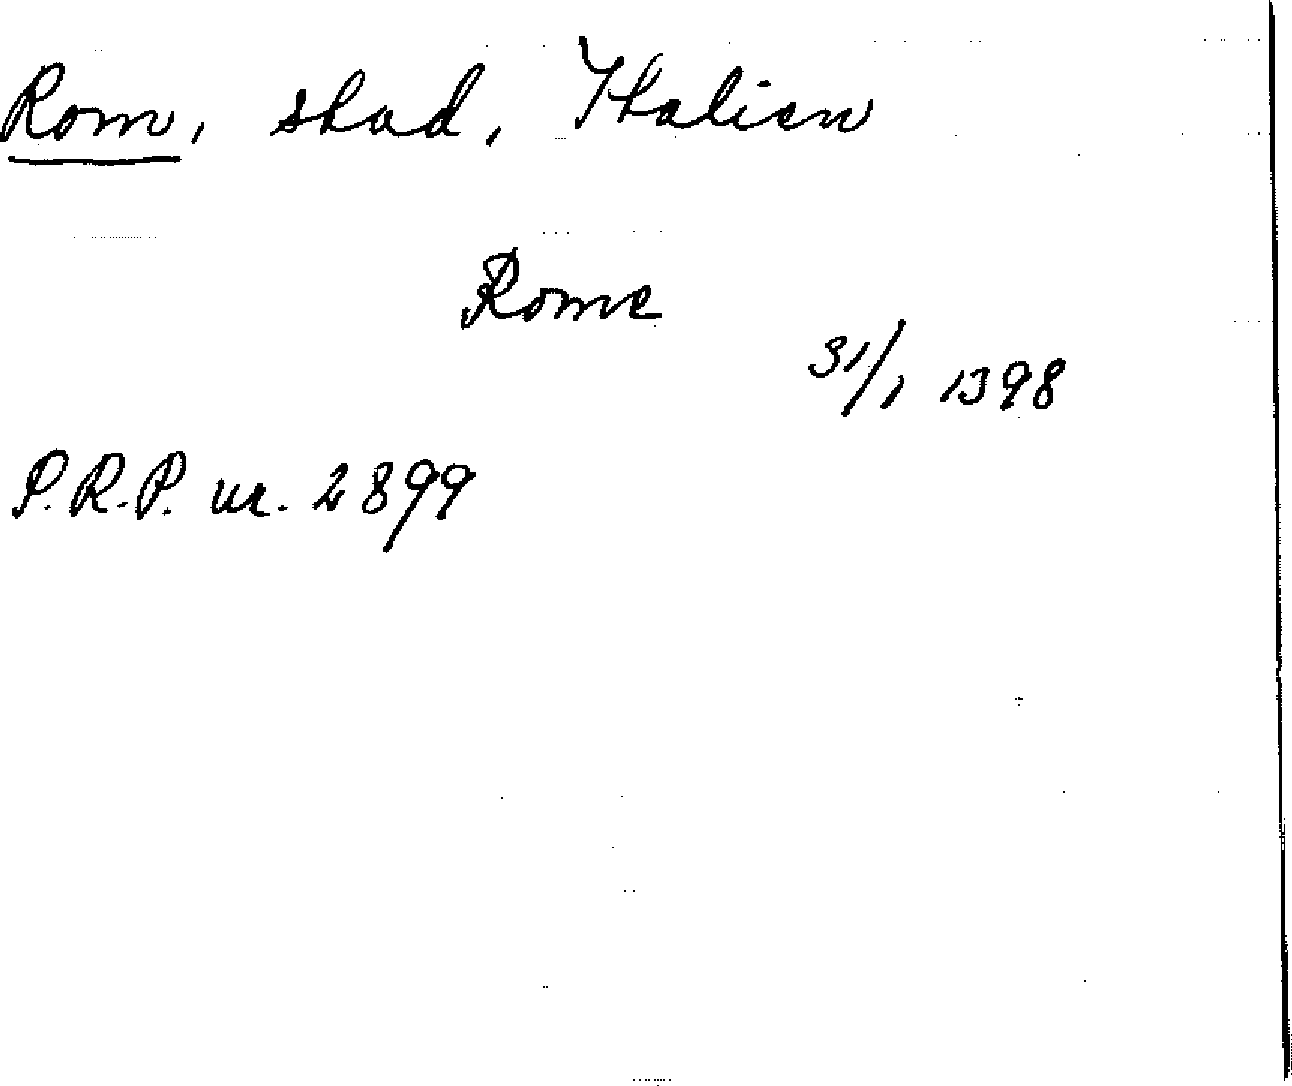 Rom, stad, Italien
Rome
31/1 1398
P.R.P. nr. 2899